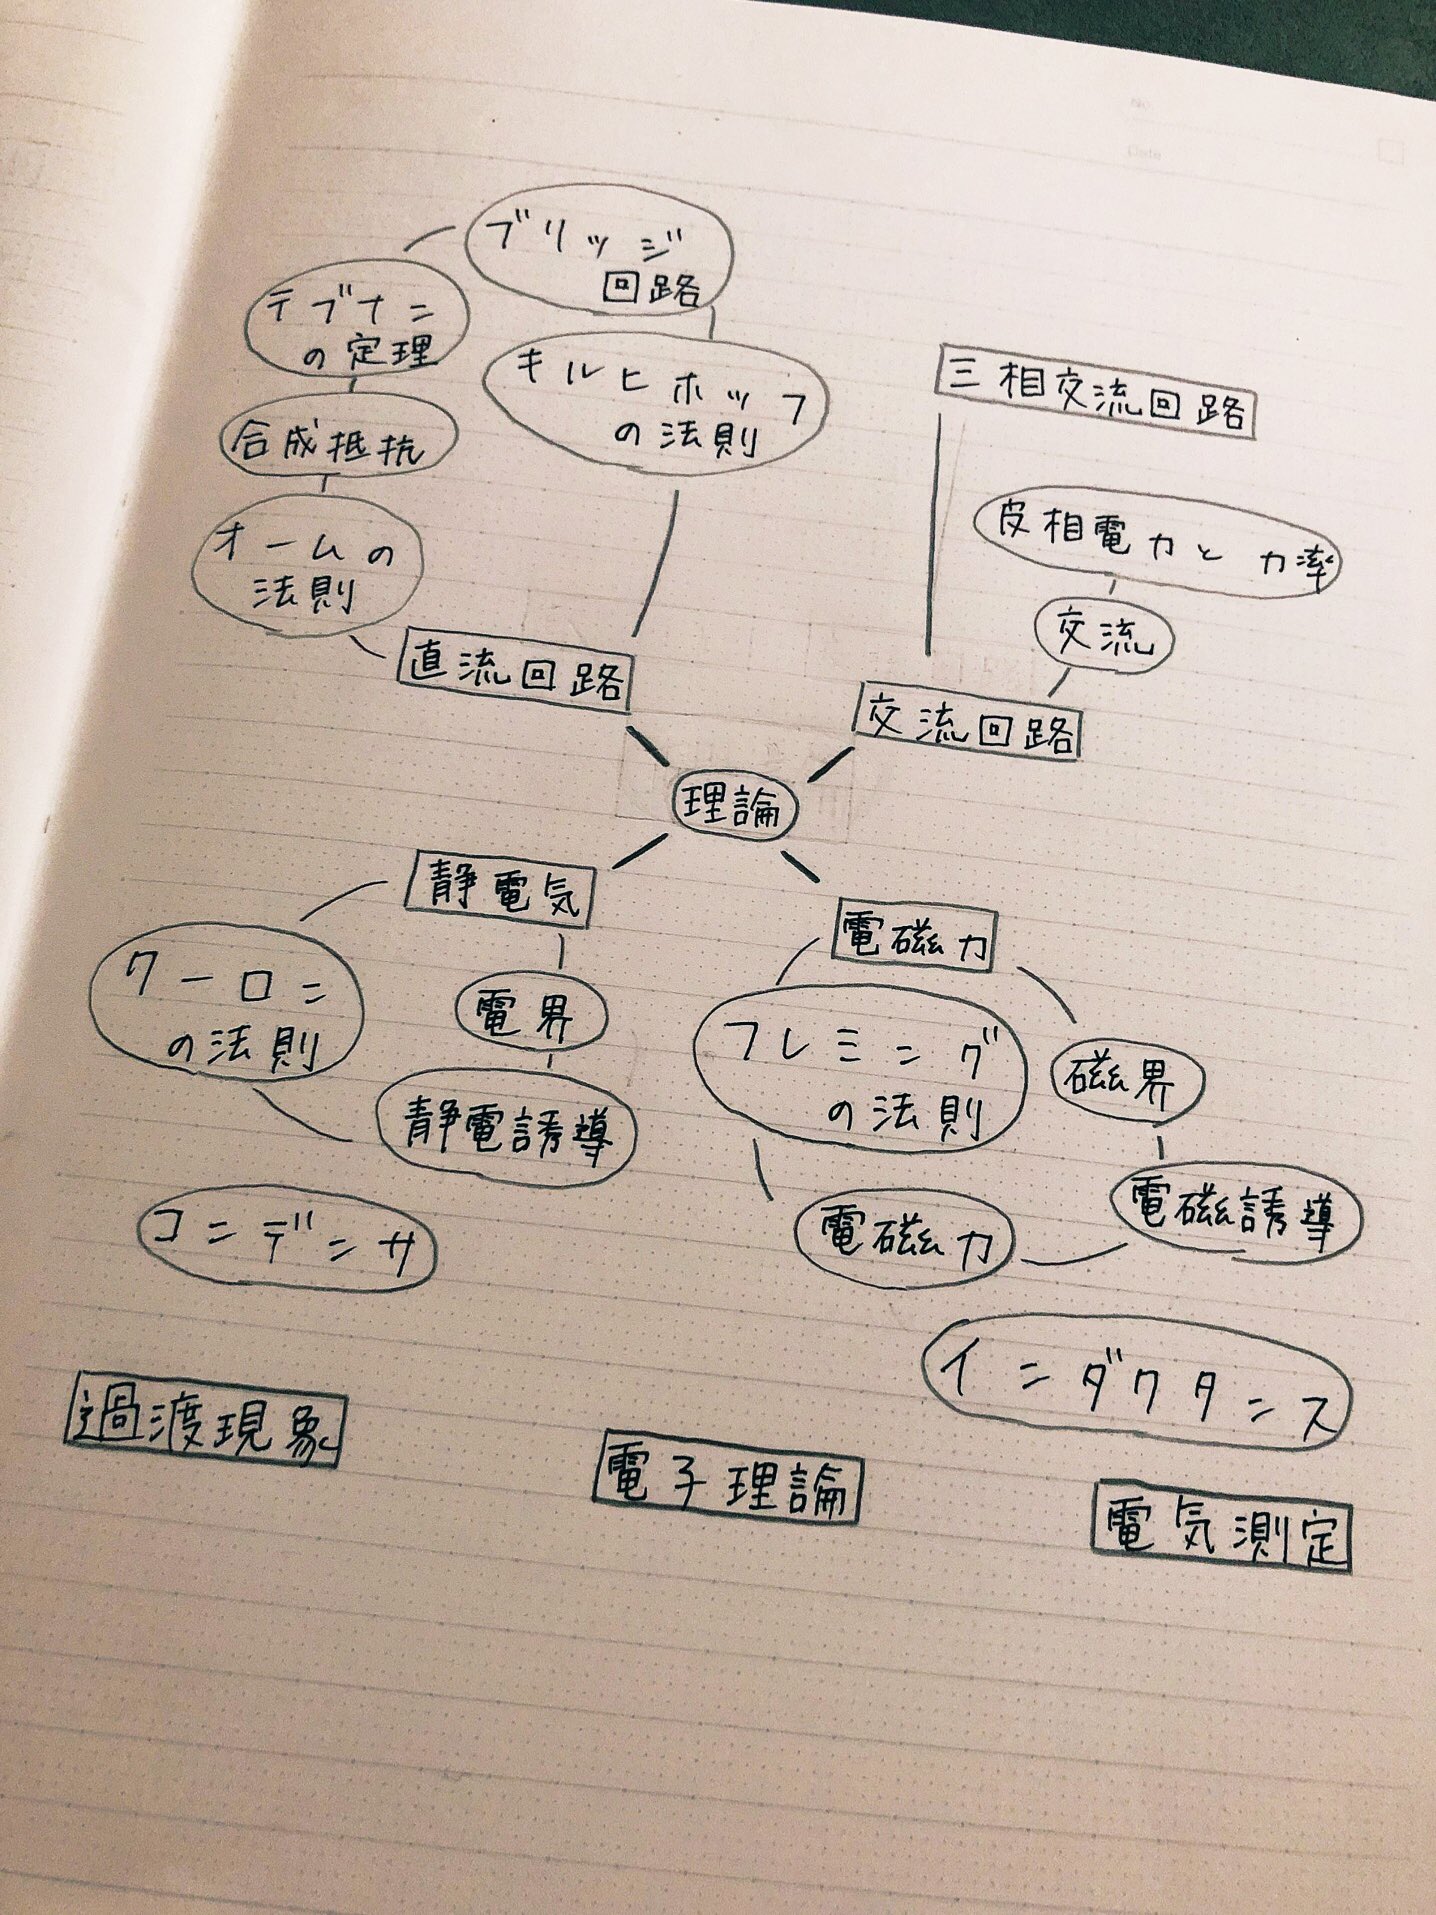 ブリッジ
回路
テブナン
の定理
キルヒホッフ
の法則
三相交流回路
合成抵抗
皮相電力と力率
オームの
法則
交流
直流回路
交流回路
理論
静電気
電磁力
クーロン
の法則
電界
フレミング
の法則
磁界
静電誘導
電磁誘導
電磁力
コンデンサ
インダクタンス
過渡現象
電子理論
電気測定